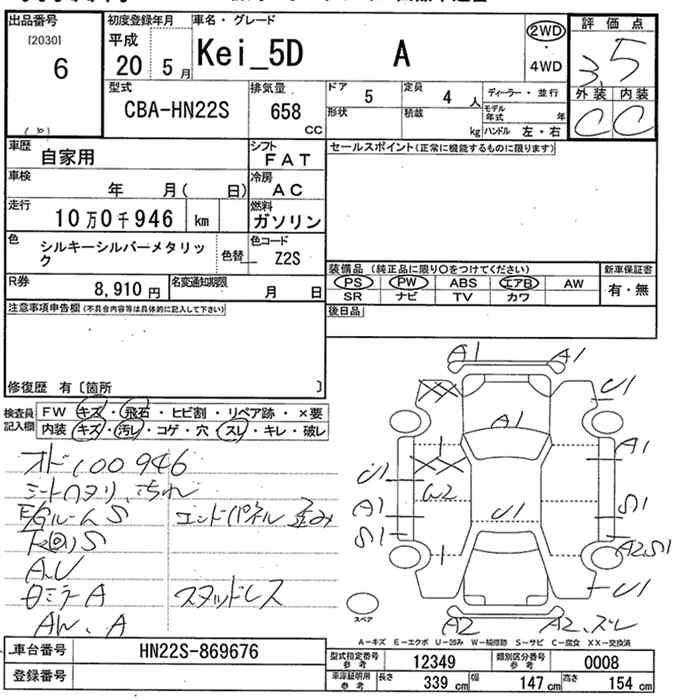 出品番号
[2030]
6
初度登録年月
平成
20 5 月
車名・グレード
Kei_5D A
2WD
・
4WD
評価点
3.5
外装 内装
C C
型式
CBA-HN22S
排気量
658
cc
ドア
5
定員
4 人
ディーラー・並行
形状
積載
kg
モデル年式 年
ハンドル 左・右
車歴
自家用
シフト
FAT
セールスポイント(正常に機能するものに限ります)
車検
年 月( 日)
冷房
AC
走行
10万0千946 km
燃料
ガソリン
色
シルキーシルバーメタリック
色替
色コード
Z2S
装備品 (純正品に限り○をつけてください)
新車保証書
PS PW ABS エアB AW
有・無
SR ナビ TV カワ
R券
8,910 円
名変通知期限
月 日
後日品
注意事項申告欄(不具合内容等は具体的に記入して下さい)
修復歴 有〔箇所 〕
検査員記入欄
FW キズ・飛石・ヒビ割・リペア跡・×要
内装 キズ・汚レ・コゲ・穴・スレ・キレ・破レ
オド100946
シートヘタリ、汚れ
E/GルームS エンドパネル歪み
下回りS
A、U
ミラーA スタッドレス
AW、A
A1 A1
U1
A1
A1
U1
W2
A1
S1
U1
S1
A2,S1
U1
A2
A2、ズレ
スペア
A-キズ E-エクボ U-凹み W-補修跡 S-サビ C-腐食 XX-交換済
車台番号
HN22S-869676
登録番号
型式指定番号
参考
12349
類別区分番号
参考
0008
車庫証明用
参考
長さ
339 cm
幅
147 cm
高さ
154 cm